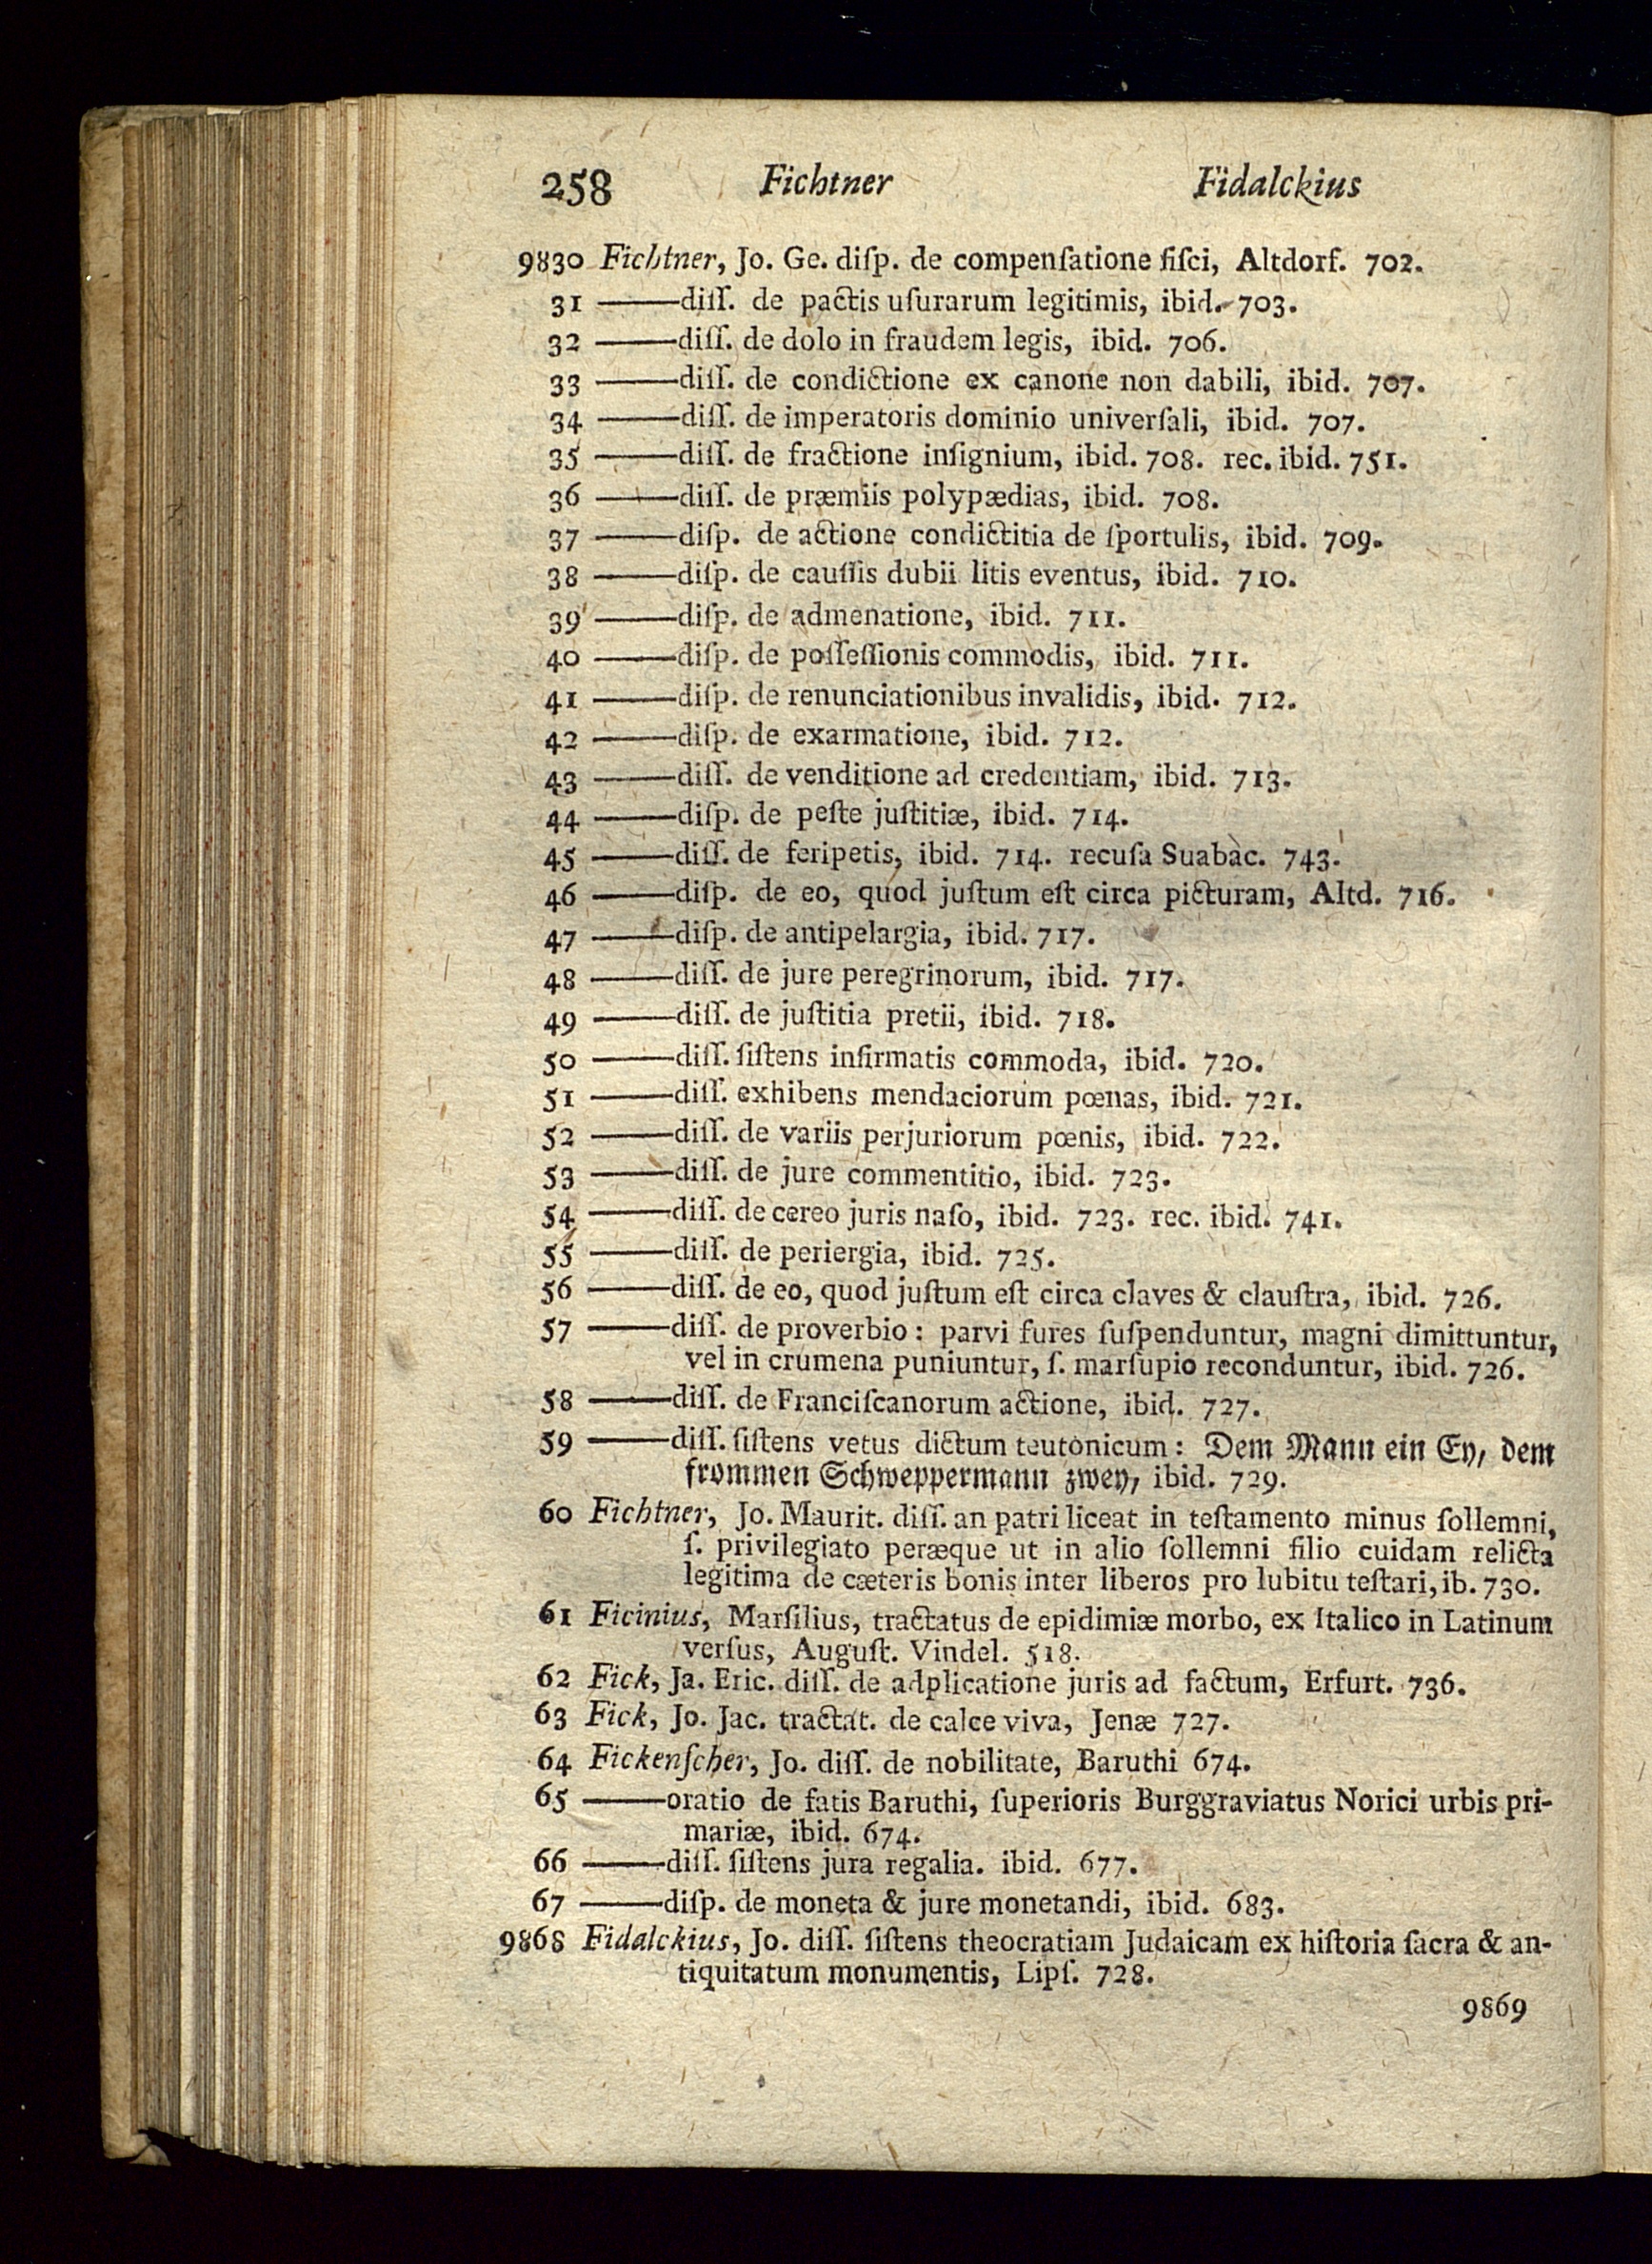 258 Fichtner Fidalckius
9830 Fichtner, Jo. Ge. diſp. de compenſatione fiſci, Altdorf. 702.
31 ——diſſ. de pactis uſurarum legitimis, ibid. 703.
32 ——diſſ. de dolo in fraudem legis, ibid. 706.
33 ——diſſ. de condictione ex canone non dabili, ibid. 707.
34 ——diſſ. de imperatoris dominio univerſali, ibid. 707.
35 ——diſſ. de fractione inſignium, ibid. 708. rec. ibid. 751.
36 ——diſſ. de præmiis polypædias, ibid. 708.
37 ——diſp. de actione condictitia de ſportulis, ibid. 709.
38 ——diſp. de cauſſis dubii litis eventus, ibid. 710.
39 ——diſp. de admenatione, ibid. 711.
40 ——diſp. de poſſeſſionis commodis, ibid. 711.
41 ——diſp. de renunciationibus invalidis, ibid. 712.
42 ——diſp. de exarmatione, ibid. 712.
43 ——diſſ. de venditione ad credentiam, ibid. 713.
44 ——diſp. de peſte juſtitiæ, ibid. 714.
45 ——diſſ. de feripetis, ibid. 714. recuſa Suabac. 743.
46 ——diſp. de eo, quod juſtum eſt circa picturam, Altd. 716.
47 ——diſp. de antipelargia, ibid. 717.
48 ——diſſ. de jure peregrinorum, ibid. 717.
49 ——diſſ. de juſtitia pretii, ibid. 718.
50 ——diſſ. ſiſtens infirmatis commoda, ibid. 720.
51 ——diſſ. exhibens mendaciorum pœnas, ibid. 721.
52 ——diſſ. de variis perjuriorum pœnis, ibid. 722.
53 ——diſſ. de jure commentitio, ibid. 723.
54 ——diſſ. de cereo juris naſo, ibid. 723. rec. ibid. 741.
55 ——diſſ. de periergia, ibid. 725.
56 ——diſſ. de eo, quod juſtum eſt circa claves & clauſtra, ibid. 726.
57 ——diſſ. de proverbio: parvi fures ſuſpenduntur, magni dimittuntur,
vel in crumena puniuntur, ſ. marſupio reconduntur, ibid. 726.
58 ——diſſ. de Franciſcanorum actione, ibid. 727.
59 ——diſſ. ſiſtens vetus dictum teutonicum: Dem Mann ein Ey, dem
frommen Schweppermann zwey, ibid. 729.
60 Fichtner, Jo. Maurit. diſſ. an patri liceat in teſtamento minus ſollemni,
ſ. privilegiato peræque ut in alio ſollemni filio cuidam relicta
legitima de cæteris bonis inter liberos pro lubitu teſtari, ib. 730.
61 Ficinius, Marſilius, tractatus de epidimiæ morbo, ex Italico in Latinum
verſus, Auguſt. Vindel. 518.
62 Fick, Ja. Eric. diſſ. de adplicatione juris ad factum, Erfurt. 736.
63 Fick, Jo. Jac. tractat. de calce viva, Jenæ 727.
64 Fickenſcher, Jo. diſſ. de nobilitate, Baruthi 674.
65 ——oratio de fatis Baruthi, ſuperioris Burggraviatus Norici urbis pri-
mariæ, ibid. 674.
66 ——diſſ. ſiſtens jura regalia. ibid. 677.
67 ——diſp. de moneta & jure monetandi, ibid. 683.
9868 Fidalckius, Jo. diſſ. ſiſtens theocratiam Judaicam ex hiſtoria ſacra & an-
tiquitatum monumentis, Lipſ. 728.
9869